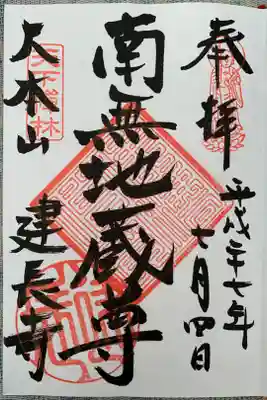 奉拝
平成二十七年
七月四日
南無地蔵尊
天下禅林
大本山
建長寺